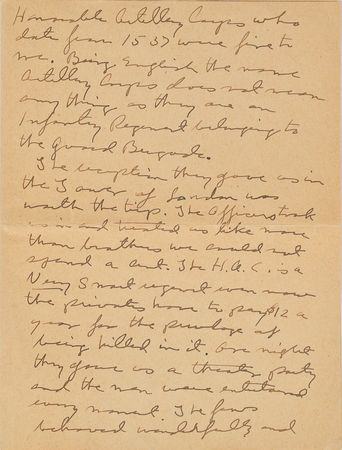 Honorable Artillery Corps who
date from 1537 were fine to
me. Being English the name
Artillery Corps does not mean
any thing as they are an
Infantry Regiment belonging to
the Guard Brigade.
The reception they gave us in
the Tower of London was
worth the trip. The Officers took
us in and treated us like more
than brothers we could not
spend a cent. The H.A.C. is a
Very Smart regiment even now
the privates have to pay $12 a
year for the privilege of
being killed in it. One night
they gave us a theater party
and the men were entertained
every moment. The fews
behaved wonderfully and